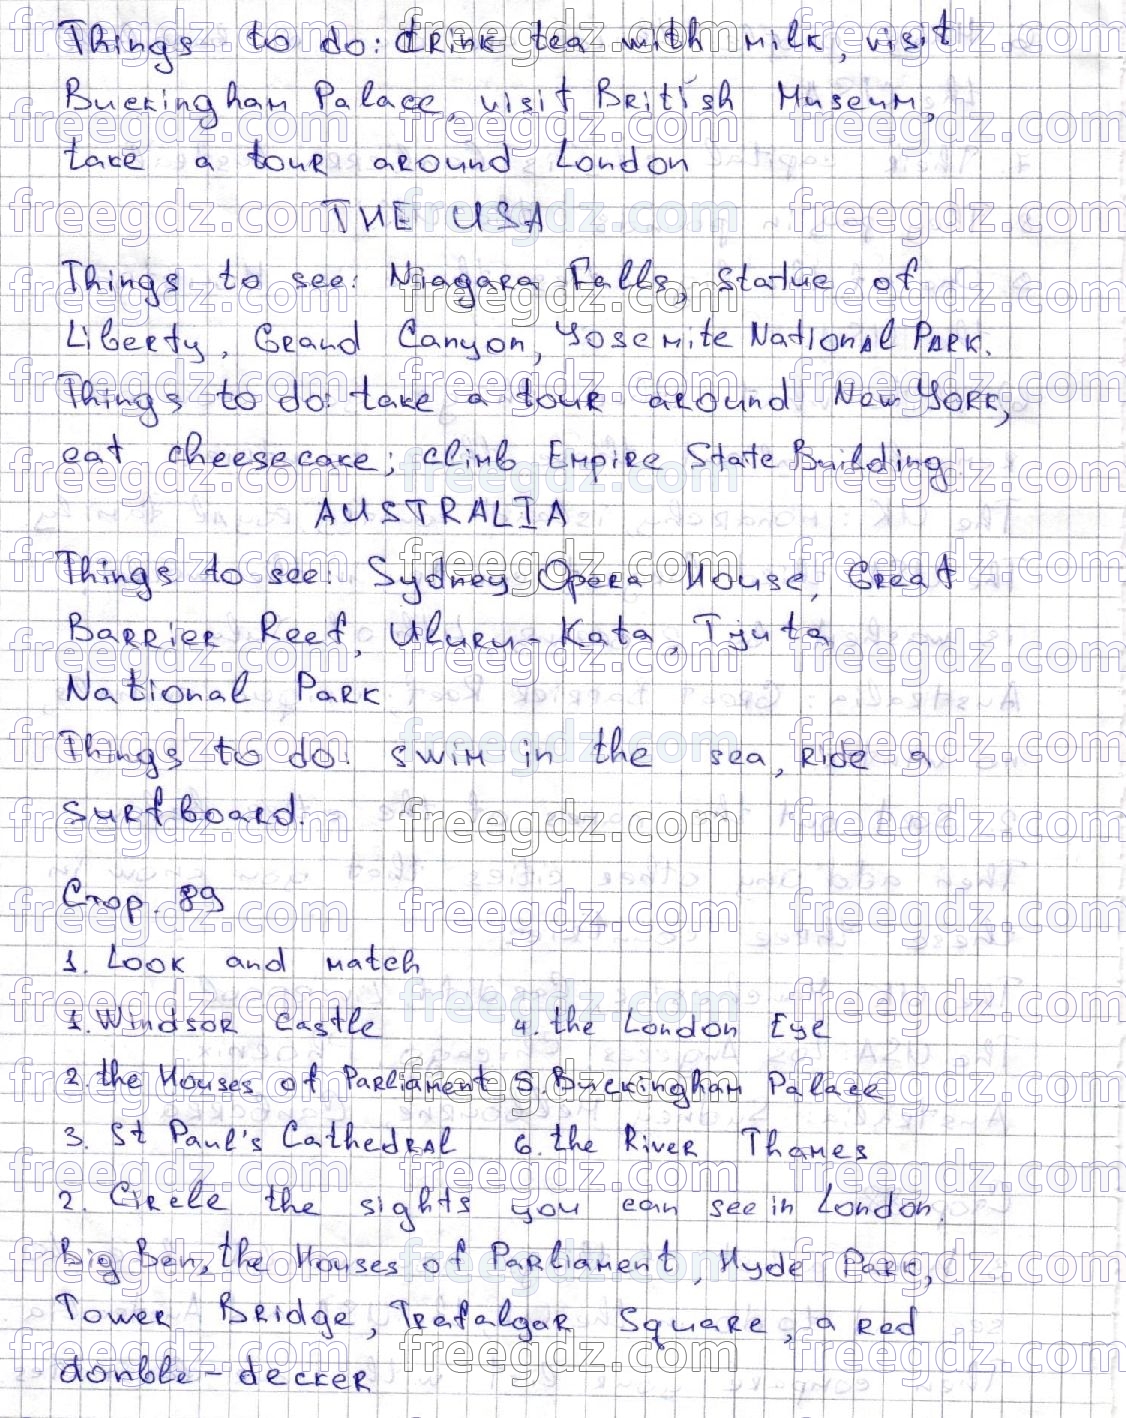 Things to do: drink tea with milk, visit
Buckingham Palace, visit British Museum,
take a tour around London
THE USA
Things to see: Niagara Falls, Statue of
Liberty, Grand Canyon, Yosemite National Park.
Things to do: take a tour around New York,
eat cheesecake; climb Empire State Building
AUSTRALIA
Things to see: Sydney Opera House, Great
Barrier Reef, Uluru-Kata, Tjuta
National Park
Things to do: swim in the sea, ride a
surfboard.
Стор. 89
1. Look and match
1. Windsor Castle 4. the London Eye
2. the Houses of Parliament 5. Buckingham Palace
3. St Paul's Cathedral 6. the River Thames
2. Circle the sights you can see in London.
Big Ben, the Houses of Parliament, Hyde Park,
Tower Bridge, Trafalgar Square, a red
double-decker